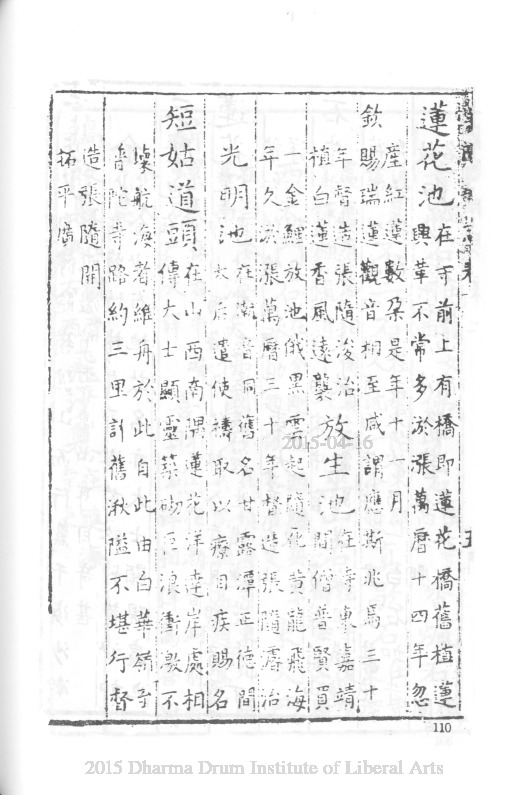 蓮花池 在寺前上有橋即蓮花橋舊植蓮
興革不常多淤漲萬曆十四年忽
產紅蓮數朵是年十一月
欽賜瑞蓮觀音相至咸謂應斯兆焉三十
年督造張隨浚治
植白蓮香風遠襲
放生池 在寺東嘉靖
間僧普賢買
一金鯉放池俄黑雲起隨化黃龍飛海
年久淤漲萬曆三十年督造張隨濬治
光明池 在潮音洞舊名甘露潭正德間
太后遣使禱取以療目疾賜名
短姑道頭 在山西南隅蓮花洋達岸處相
傳大士顯靈築砌巨浪衝激不
壞航海者維舟於此自此由白華嶺至
普陀寺路約三里許舊湫隘不堪行督
造張隨開
拓平廣
2015-04-16
110
2015 Dharma Drum Institute of Liberal Arts